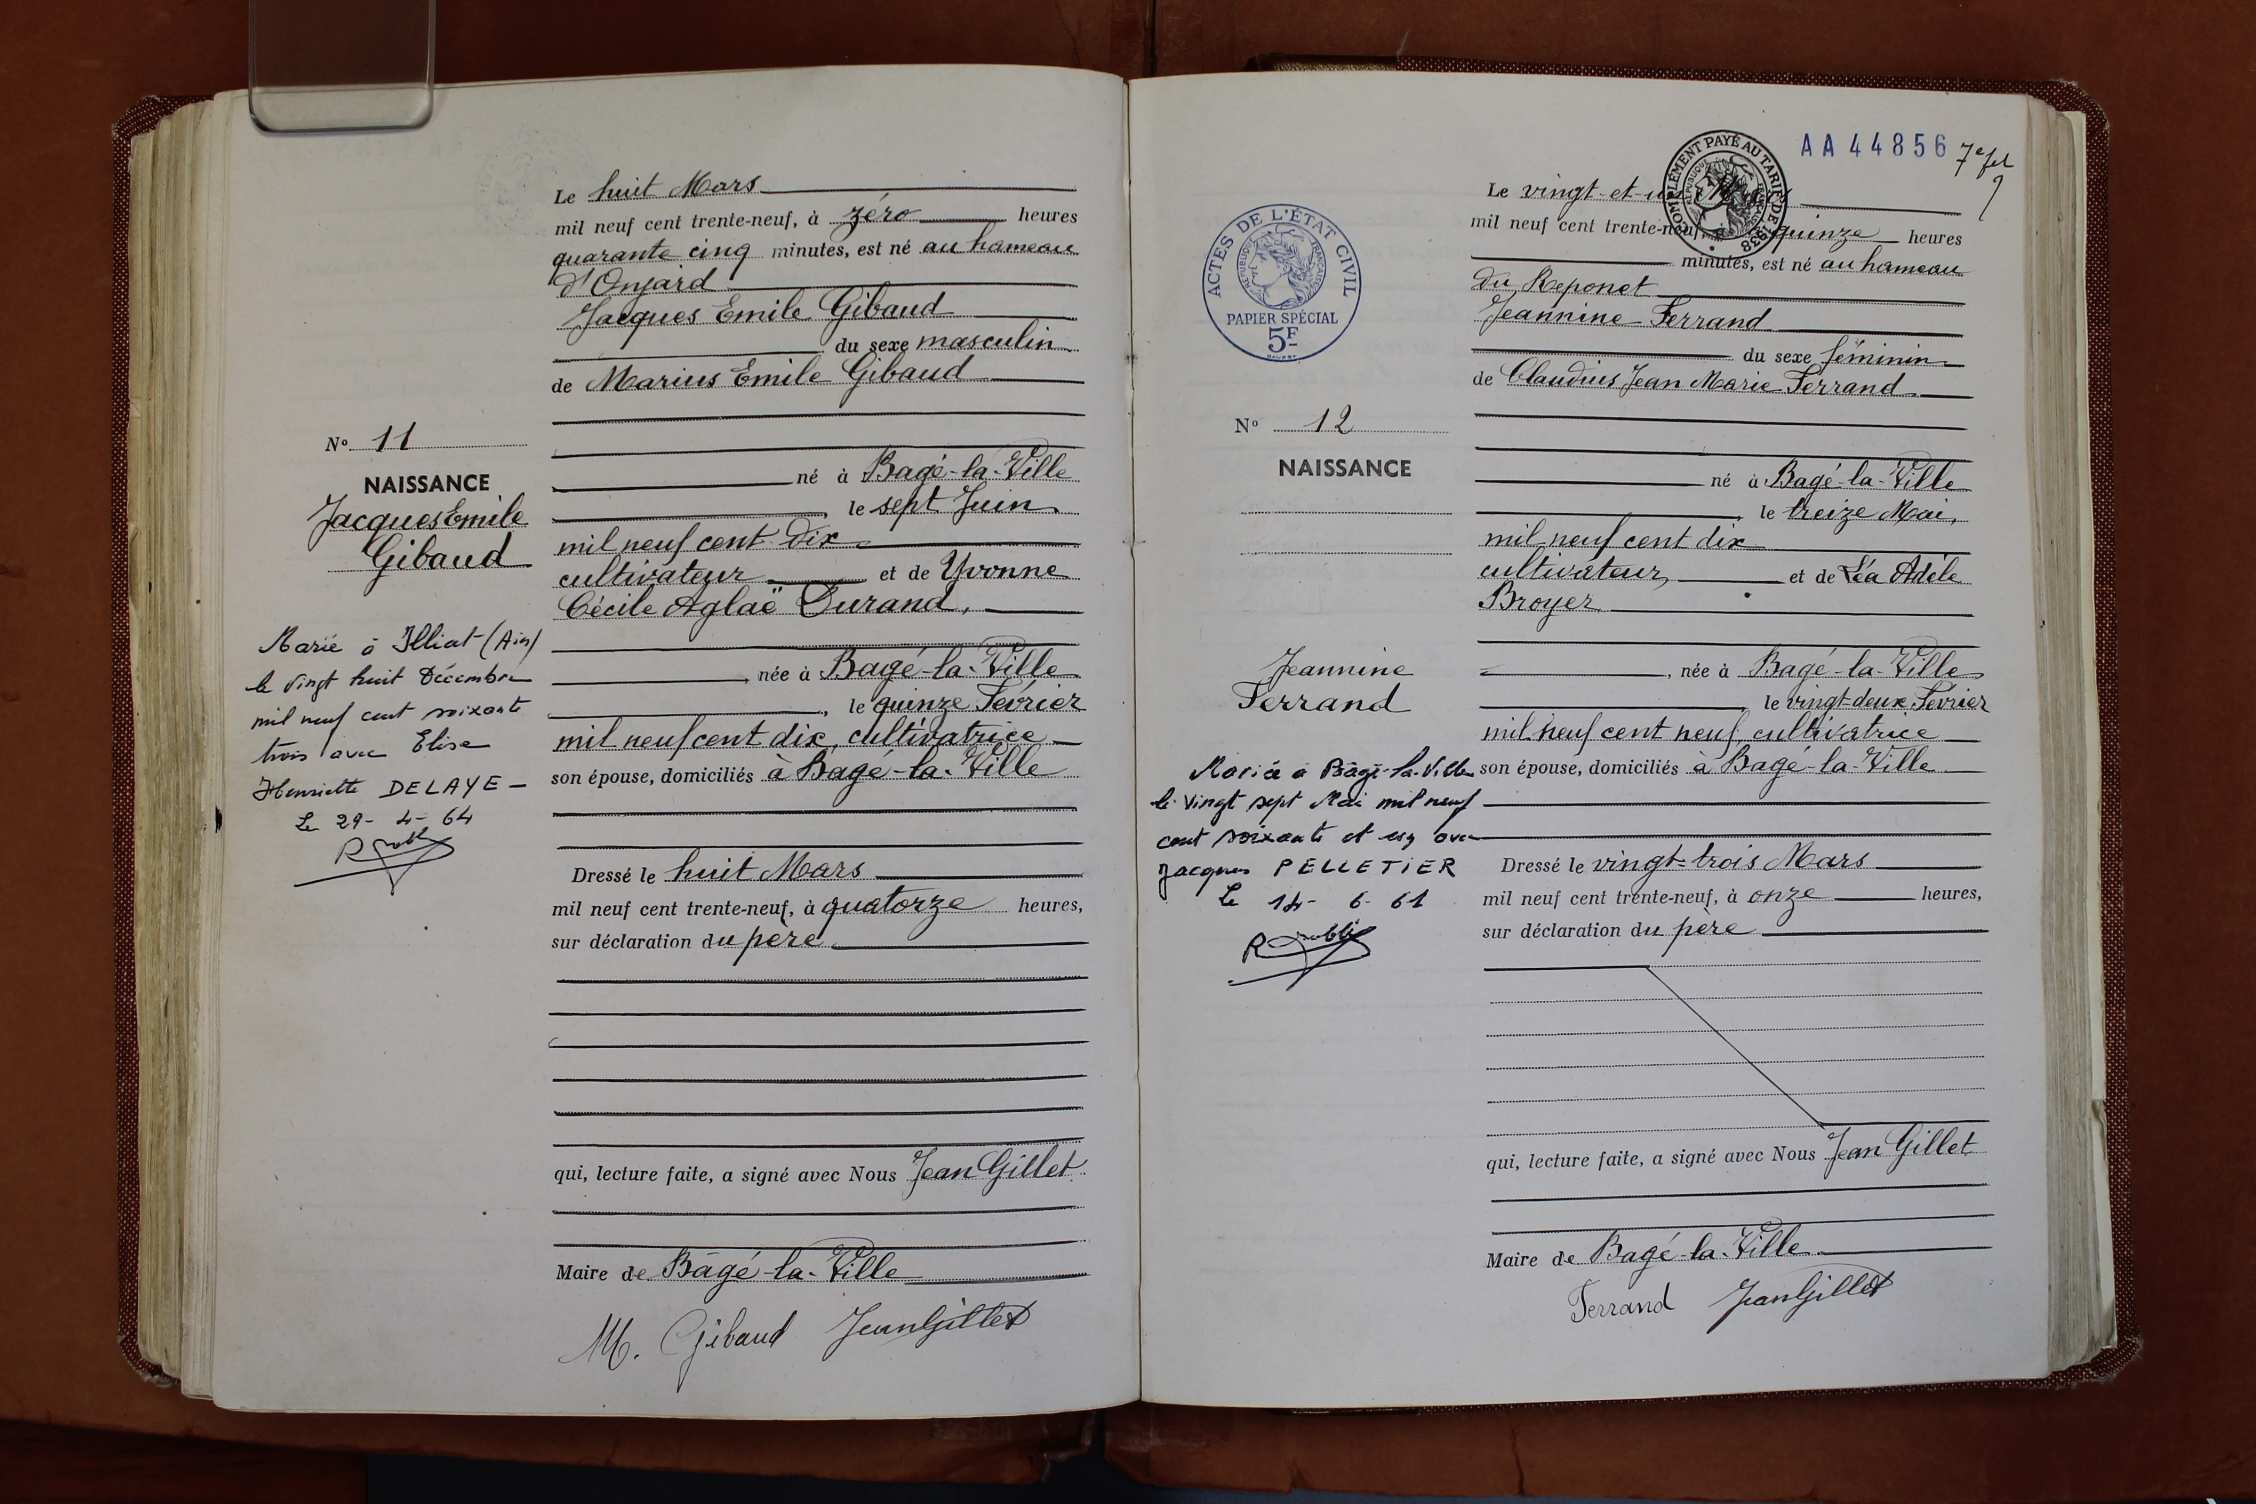 Le huit Mars
mil neuf cent trente-neuf, à zéro heures
quarante cinq minutes, est né au hameau
d'Onjard
Jacques Emile Gibaud
du sexe masculin
de Marius Emile Gibaud
né à Bagé-la-Ville
le sept Juin
mil neuf cent dix
cultivateur et de Yvonne
Cécile Aglaë Durand,
née à Bagé-la-Ville
, le quinze Février
mil neuf cent dix, cultivatrice
son épouse, domiciliés à Bagé-la-Ville
Dressé le huit Mars
mil neuf cent trente-neuf, à quatorze heures,
sur déclaration du père
qui, lecture faite, a signé avec Nous Jean Gillet
Maire de Bâgé-la-Ville
M. Gibaud Jean Gillet
No 11
NAISSANCE
Jacques Emile
Gibaud
Marié à Illiat (Ain)
le vingt huit Décembre
mil neuf cent soixante
trois avec Elise
Henriette DELAYE –
Le 29 - 4 - 64
AA 44856
7e fet
COMPLÉMENT PAYÉ AU TARIF DE 1938
RÉPUBLIQUE FRANÇAISE
Le vingt-et-un Mars
mil neuf cent trente-neuf, à quinze heures
minutes, est né au hameau
du Reponet
Jeannine Ferrand
du sexe féminin
de Claudius Jean Marie Ferrand
né à Bagé-la-Ville
, le treize Mai,
mil neuf cent dix
cultivateur, et de Léa Adèle
Broyer
, née à Bagé-la-Ville
, le vingt-deux Février
mil neuf cent neuf, cultivatrice
son épouse, domiciliés à Bagé-la-Ville
Dressé le vingt-trois Mars
mil neuf cent trente-neuf, à onze heures,
sur déclaration du père
qui, lecture faite, a signé avec Nous Jean Gillet
Maire de Bagé-la-Ville
Ferrand Jean Gillet
ACTES DE L'ÉTAT CIVIL
RÉPUBLIQUE FRANÇAISE
PAPIER SPÉCIAL
5F
No 12
NAISSANCE
Jeannine
Ferrand
Mariée à Bâgé-la-Ville
le vingt sept Mai mil neuf
cent soixante et un avec
Jacques PELLETIER
Le 14 - 6 - 61